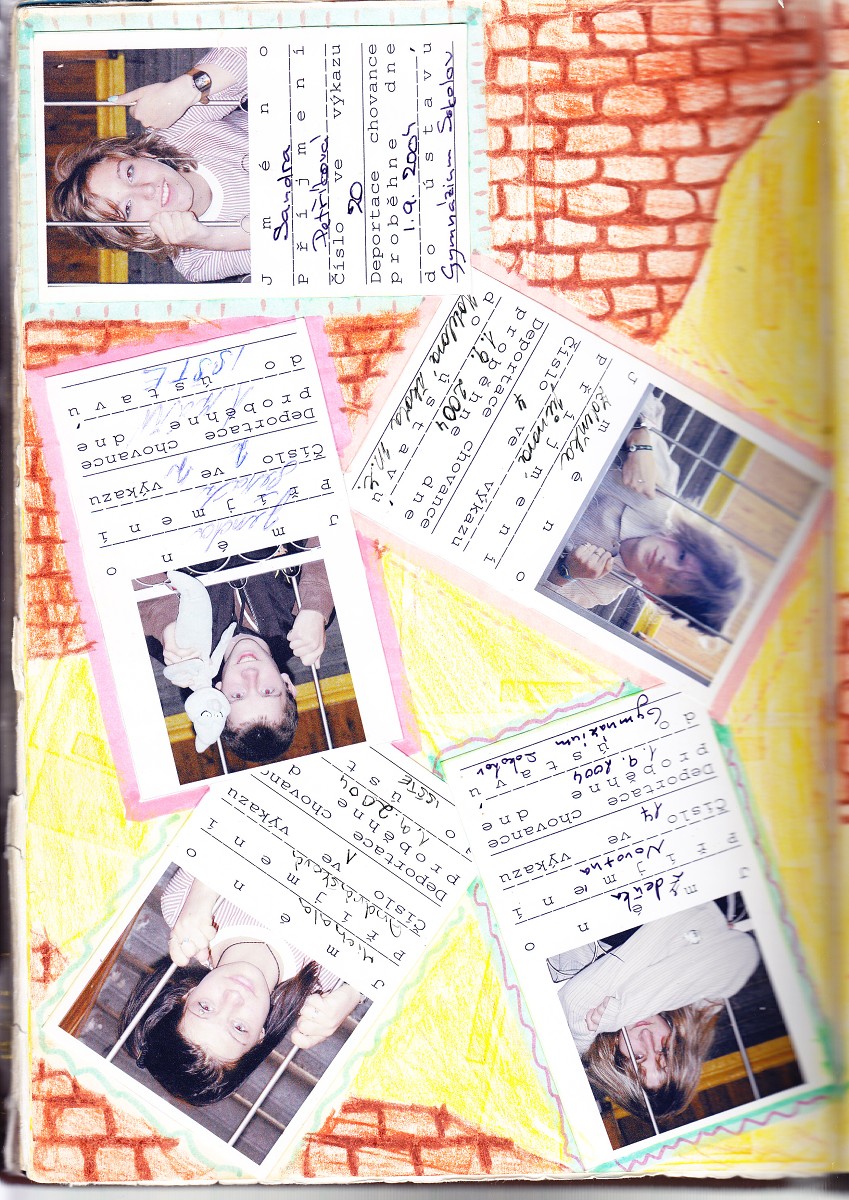 Jméno
Sandra
Příjmení
Petříková
číslo ve výkazu
20
Deportace chovance
proběhne dne
1.9. 2004
do ústavu
Gymnázium Sokolov
Jméno
Příjmení
číslo ve výkazu
4
Deportace chovance
proběhne dne
1.9. 2004
do ústavu
Jméno
Příjmení
číslo ve výkazu
Deportace chovance
proběhne dne
do ústavu
ISŠTE
Jméno
Zdeňka
Příjmení
Novotná
číslo ve výkazu
14
Deportace chovance
proběhne dne
1.9. 2004
do ústavu
Gymnázium Sokolov
Jméno
Michaela
Příjmení
číslo ve výkazu
1
Deportace chovance
proběhne d
1.9. 2004
do úst
ISŠTE